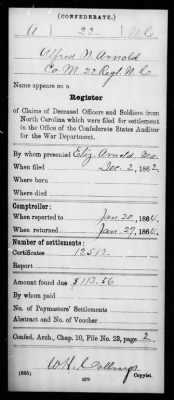 (CONFEDERATE.)
A 22 N.C.
Alfred N. Arnold
Co. M. 22 Regt. N.C.
Name appears on a
Register
of Claims of Deceased Officers and Soldiers from
North Carolina which were filed for settlement
in the Office of the Confederate States Auditor
for the War Department.
By whom presented Eliz. Arnold,
When filed Dec. 2, 1862
Where born
Where died
Comptroller:
When reported to Jan. 20, 186
When returned Jan. 27, 186
Number of settlements:
Certificates 12517
Report
Amount found due $113.56
By whom paid
No. of Paymasters' Settlements
Abstract and No. of Voucher
Confed. Arch., Chap. 10, File No. 23, page 2
W.H. Collings
(635) Copyist.